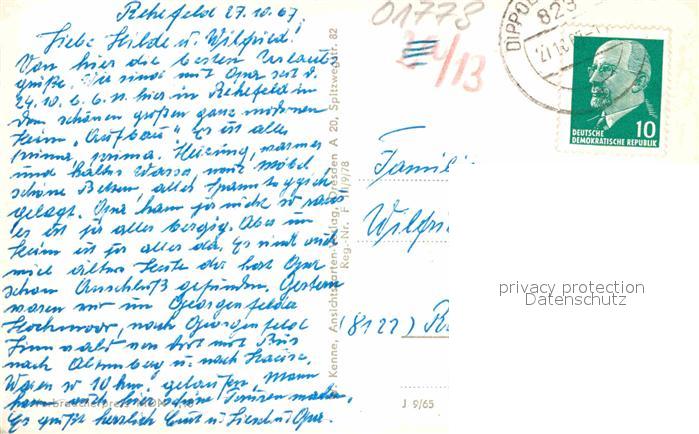 Rehefeld 27.10.67
Liebe Hilde u. Wilfried!
Von hier die besten Urlaubs
grüße. Wir sind mit Opa seit d.
24.10. b. 6.11. hier in Rehefeld im
dem schönen großen ganz modernen
Heim "Aufbau". Es ist alles
prima, prima. Heizung, warmes
und kaltes Wasser, neue Möbel
schöne Betten, alles Spannteppiche
gelegt. Opa kann ja nicht so raus
es ist ja alles bergig. Aber im
Heim ist ja alles da. Es sind auch
viel ältere Leute da, hat Opa
schon Anschluß gefunden. Gestern
waren wir im Georgenfelder
Hochmoor, nach Georgenfeld
Zinnwald von dort mit Bus
nach Altenberg u. nach Hause.
Waren so 10 km gelaufen. Mann
kann auch hier schöne Touren machen.
Es grüßt herzlich Curt u. Liesel u. Opa.
01778
24/13
DIPPOL
823
27.10.67-1
10
DEUTSCHE
DEMOKRATISCHE REPUBLIK
Familie
Wilfri
(8122) R
Kenne, Ansichtskarten-Verlag, Dresden A 20, Spitzwegstr. 82
Reg.-Nr.
/9/78
J 9/65
privacy protection
Datenschutz